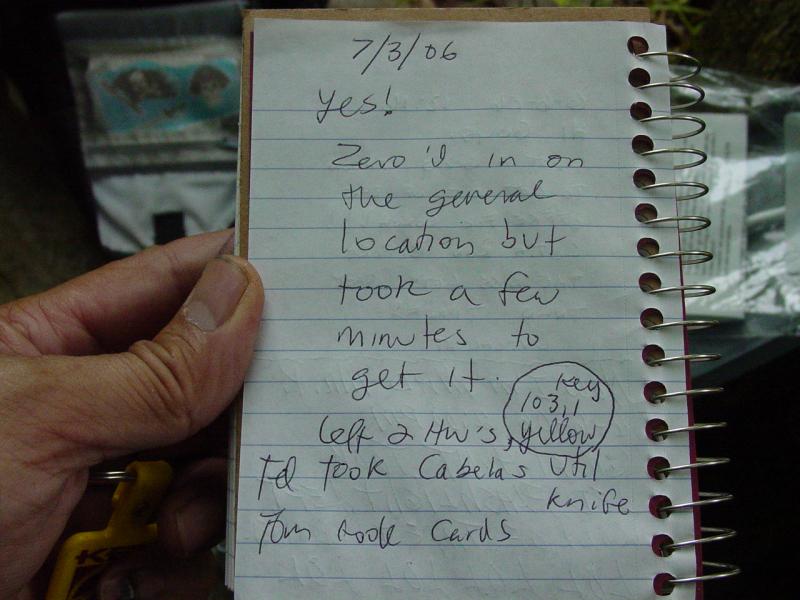 7/3/06
Yes!
Zero'd in on
the general
location but
took a few
minutes to
get it.
key
103.1
left 2 HW's, yellow
Ted took Cabelas Util
knife
Tom took Cards